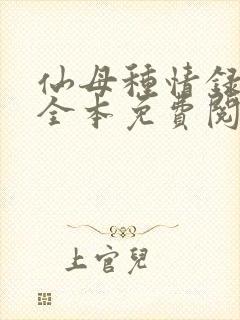 仙母種情録
全本免費閱
上官兒